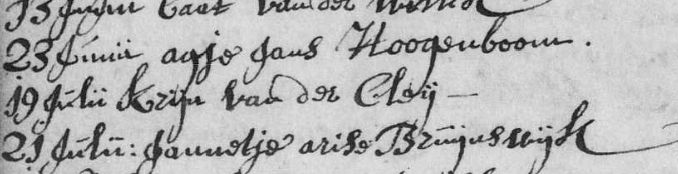 13 Junii Caat van der
23 Junii agje Jans Hoogenboom.
19 Julii Krijn van der Cleij —
21 Julii: Jannetje arise Bruijnswijk